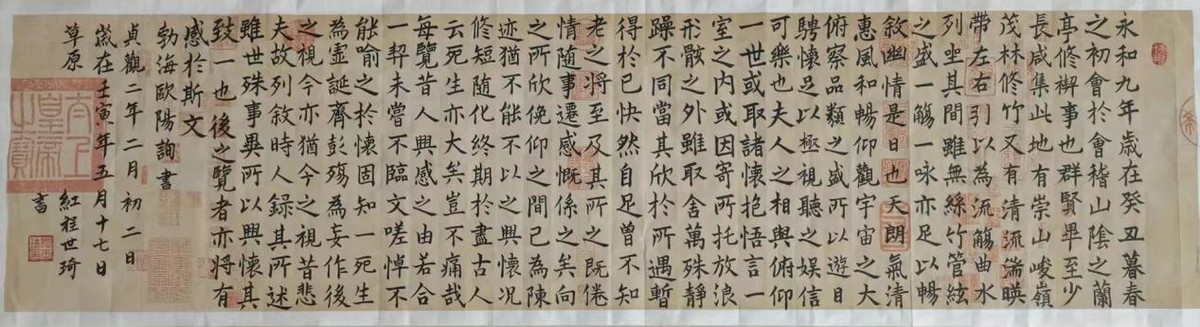 永和九年歲在癸丑暮春
之初會於會稽山陰之蘭
亭修禊事也群賢畢至少
長咸集此地有崇山峻嶺
茂林修竹又有清流湍暎
帶左右引以為流觴曲水
列坐其間雖無絲竹管絃
之盛一觴一咏亦足以暢
敘幽情是日也天朗氣清
惠風和暢仰觀宇宙之大
俯察品類之盛所以遊目
騁懷足以極視聽之娛信
可樂也夫人之相與俯仰
一世或取諸懷抱悟言一
室之內或因寄所托放浪
形骸之外雖取舍萬殊靜
躁不同當其欣於所遇暫
得於己快然自足曾不知
老之將至及其所之既倦
情隨事遷感慨係之矣向
之所欣俛仰之間已為陳
迹猶不能不以之興懷况
修短隨化終期於盡古人
云死生亦大矣豈不痛哉
每覽昔人興感之由若合
一契未嘗不臨文嗟悼不
能喻之於懷固知一死生
為虛誕齊彭殤為妄作後
之視今亦猶今之視昔悲
夫故列敘時人錄其所述
雖世殊事異所以興懷其
致一也後之覽者亦將有
感於斯文
勃海歐陽詢書
貞觀二年二月初二日
歲在壬寅年五月十七日
草原 紅程世琦
書